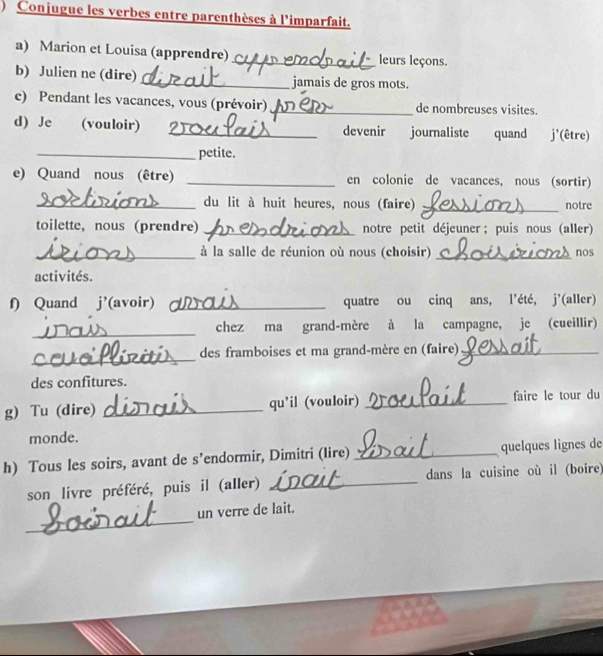 ) Conjugue les verbes entre parenthèses à l'imparfait.
a) Marion et Louisa (apprendre) apprendrait leurs leçons.
b) Julien ne (dire) dirait jamais de gros mots.
c) Pendant les vacances, vous (prévoir) de nombreuses visites.
d) Je (vouloir) devenir journaliste quand j'(être)
petite.
e) Quand nous (être) en colonie de vacances, nous (sortir)
sortirions du lit à huit heures, nous (faire) fessions notre
toilette, nous (prendre) prendrions notre petit déjeuner ; puis nous (aller)
irions à la salle de réunion où nous (choisir) choisirions nos
activités.
f) Quand j'(avoir) quatre ou cinq ans, l'été, j'(aller)
irais chez ma grand-mère à la campagne, je (cueillir)
des framboises et ma grand-mère en (faire) fessait
des confitures.
g) Tu (dire) dirais qu'il (vouloir) faire le tour du
monde.
h) Tous les soirs, avant de s'endormir, Dimitri (lire) lirait quelques lignes de
son livre préféré, puis il (aller) irait dans la cuisine où il (boire)
boirait un verre de lait.